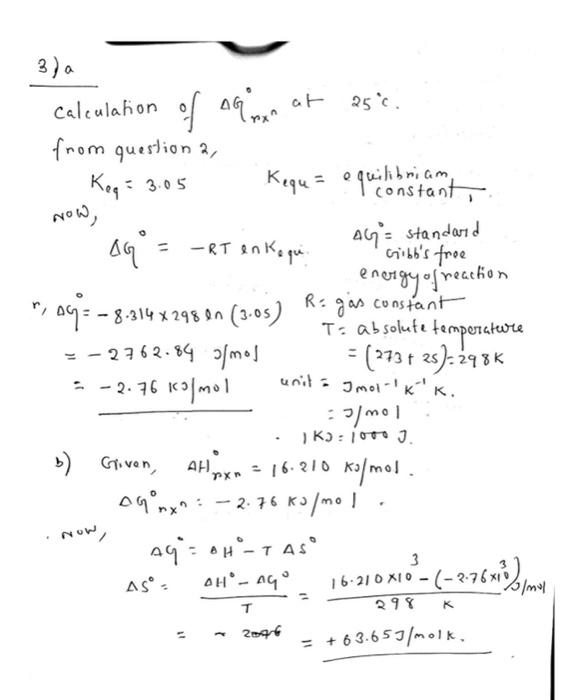 3)a
Calculation of ΔG°rxn at 25°c.
from question 2,
Keq = 3.05    Kequ = equilibriam constant,
NOW,
ΔG° = -RT ln Kequi.    ΔG° = standard Gibb's free energy of reaction
r, ΔG° = - 8.314 x 298 ln (3.05)    R = gas constant
T = absolute temperature
= - 2762.84 J/mol    = (273 + 25) = 298 K
= - 2.76 KJ/mol    unit = J mol⁻¹ K⁻¹ K.
= J/mol
. 1 KJ = 1000 J.
b) Given, ΔH°rxn = 16.210 KJ/mol.
ΔG°rxn = - 2.76 KJ/mol.
. NOW,
ΔG° = ΔH° - T ΔS°
ΔS° = (ΔH° - ΔG°) / T = (16.210 x 10³ - (-2.76 x 10³)) J/mol / 298 K
= = + 63.65 J/mol k.